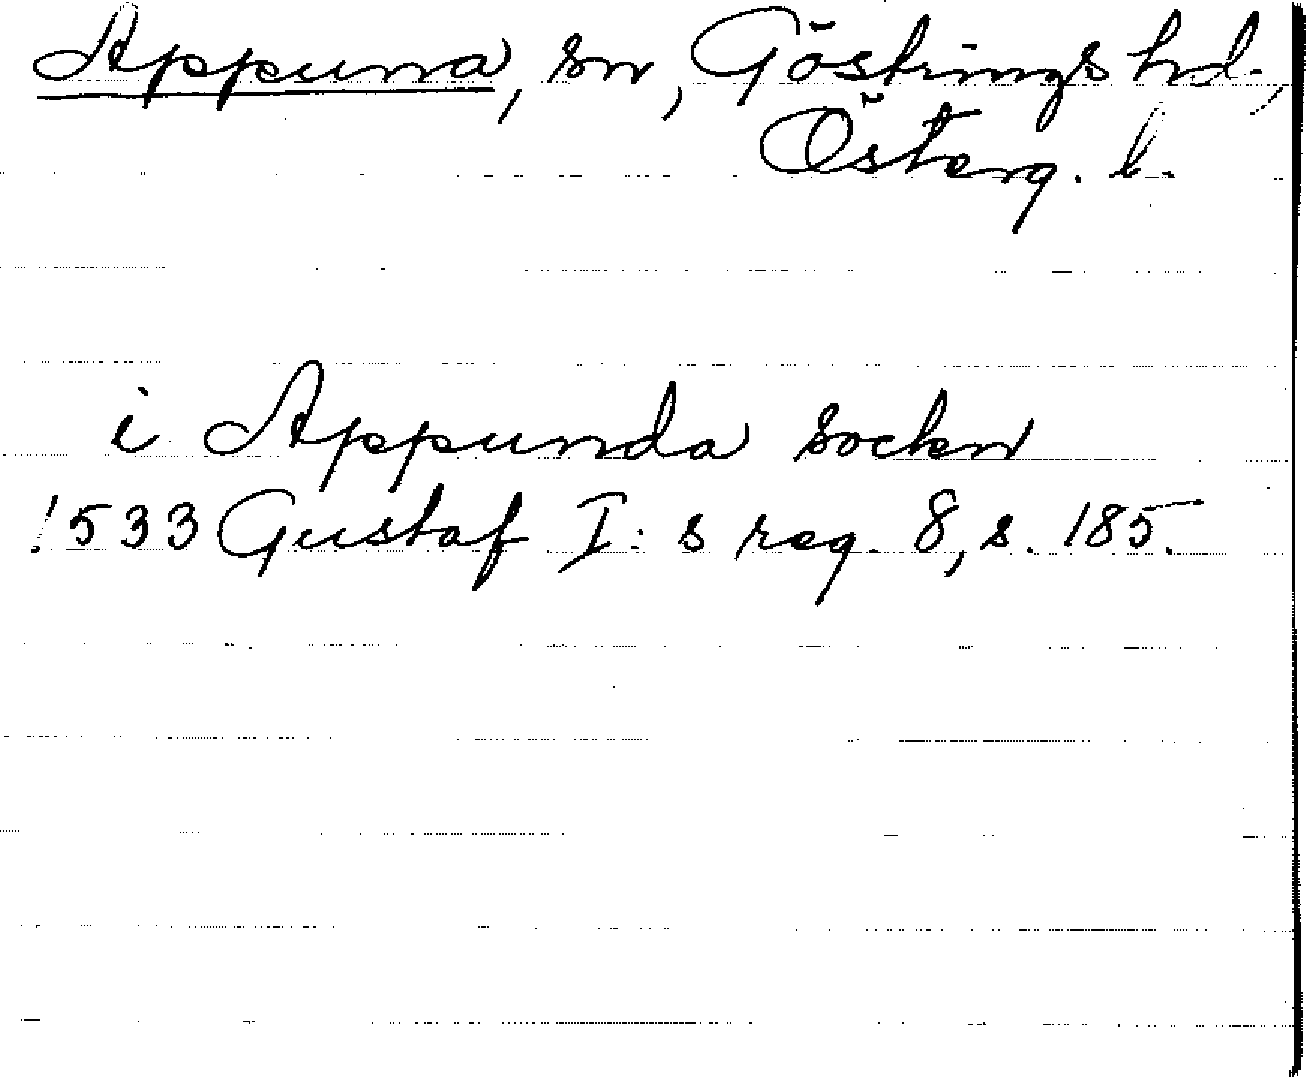 Appuna, sn, Göstrings hd.,
Österg. l.
i Appunda sockn
1533 Gustaf I:s reg. 8, s. 185.